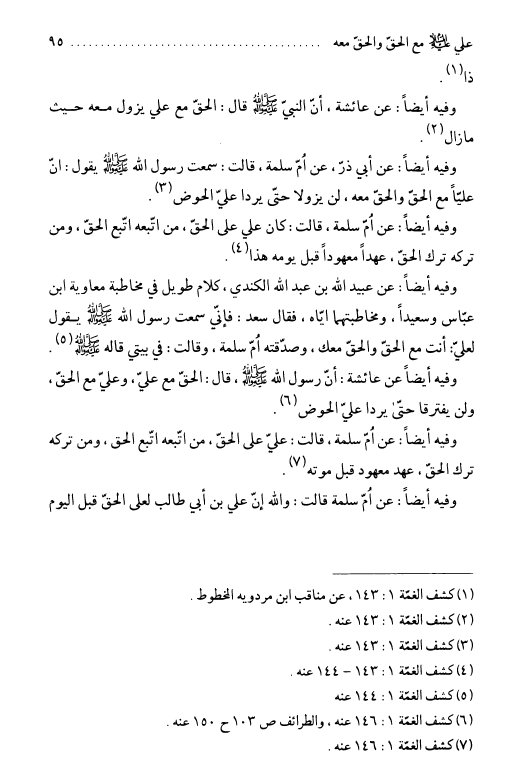 علي عليه السلام مع الحقّ والحقّ معه .......................................... ٩٥
ذا(١) .
وفيه أيضاً : عن عائشة ، أنّ النبيّ ﷺ قال : الحقّ مع علي يزول مـعه حـيث
مازال(٢) .
وفيه أيضاً : عن أبي ذرّ ، عن أمّ سلمة ، قالت : سمعت رسول الله ﷺ يقول : انّ
عليّاً مع الحقّ والحقّ معه ، لن يزولا حتّى يردا عليّ الحوض(٣) .
وفيه أيضاً : عن أمّ سلمة ، قالت : كان علي على الحقّ ، من اتّبعه اتّبع الحقّ ، ومن
تركه ترك الحقّ ، عهداً معهوداً قبل يومه هذا(٤) .
وفيه أيضاً : عن عبيد الله بن عبد الله الكندي ، كلام طويل في مخاطبة معاوية ابن
عبّاس وسعيداً ، ومخاطبتهما ايّاه ، فقال سعد : فإنّي سمعت رسول الله ﷺ يـقول
لعليّ: أنت مع الحقّ والحقّ معك ، وصدّقته أمّ سلمة ، وقالت : في بيتي قاله ﷺ(٥) .
وفيه أيضاً عن عائشة : أنّ رسول الله ﷺ ، قال : الحقّ مع عليّ ، وعليّ مع الحقّ ،
ولن يفترقا حتّى يردا عليّ الحوض(٦) .
وفيه أيضاً : عن أمّ سلمة ، قالت : عليّ على الحقّ ، من اتّبعه اتّبع الحق ، ومن تركه
ترك الحقّ ، عهد معهود قبل موته(٧) .
وفيه أيضاً : عن أمّ سلمة قالت : والله إنّ علي بن أبي طالب لعلى الحقّ قبل اليوم
(١) كشف الغمّة ١ : ١٤٣ ، عن مناقب ابن مردويه المخطوط .
(٢) كشف الغمّة ١ : ١٤٣ عنه .
(٣) كشف الغمّة ١ : ١٤٣ عنه .
(٤) كشف الغمّة ١ : ١٤٣ – ١٤٤ عنه .
(٥) كشف الغمّة ١ : ١٤٤ عنه
(٦) كشف الغمّة ١ : ١٤٦ عنه ، والطرائف ص ١٠٣ ح ١٥٠ عنه .
(٧) كشف الغمّة ١ : ١٤٦ عنه .